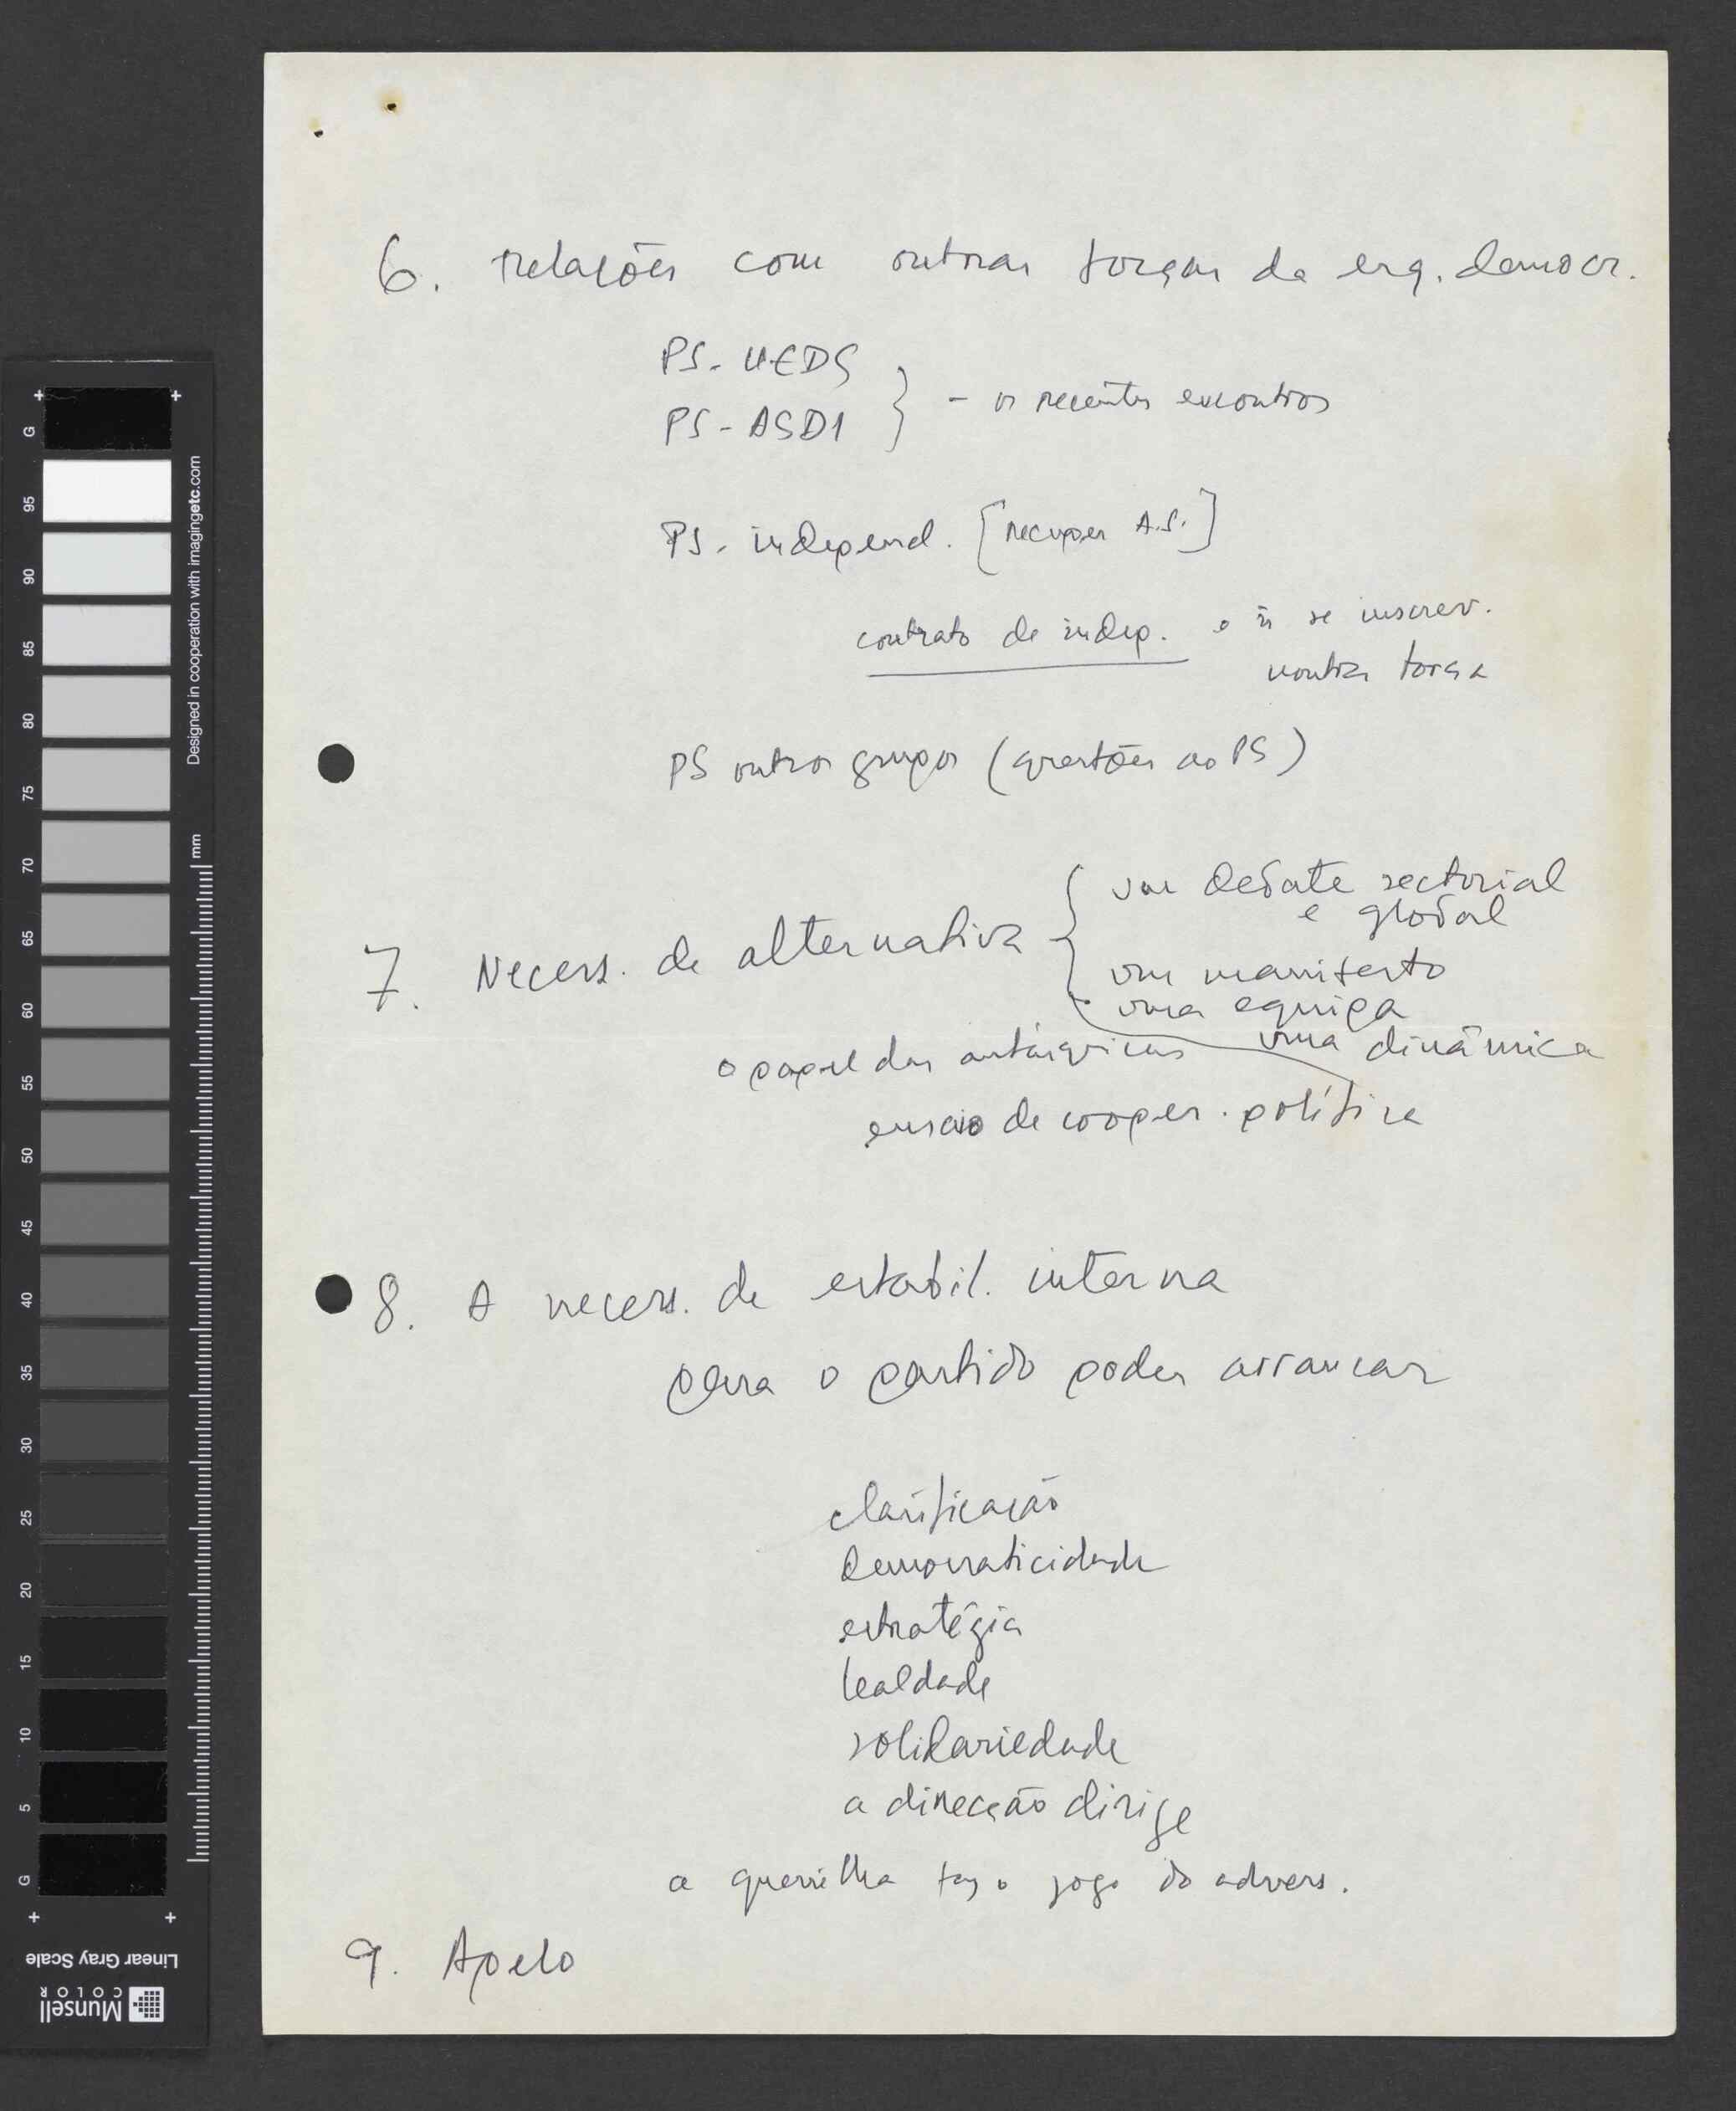 6. Relações com outras forças da esq. democr.
PS - UEDS
PS - ASDI } - os recentes encontros
PS - independ. [recuper A.S.]
contrato de indep. e ñ se inscrev.
noutra força
PS outros grupos (questões ao PS)
7. Necess. de alternativa { um debate sectorial
e global
um manifesto
uma equipa
uma dinâmica
o papel das autárquicas
ensaio de cooper. política
8. A necess. de estabil. interna
para o partido poder arrancar
clarificação
democraticidade
estratégia
lealdade
solidariedade
a direcção dirige
a guerrilha faz o jogo do advers.
9. Apelo
G
95
90
85
80
75
70
65
60
55
50
45
40
35
30
25
20
15
10
5
G
mm
Designed in cooperation with imagingetc.com
Linear Gray Scale
Munsell
COLOR